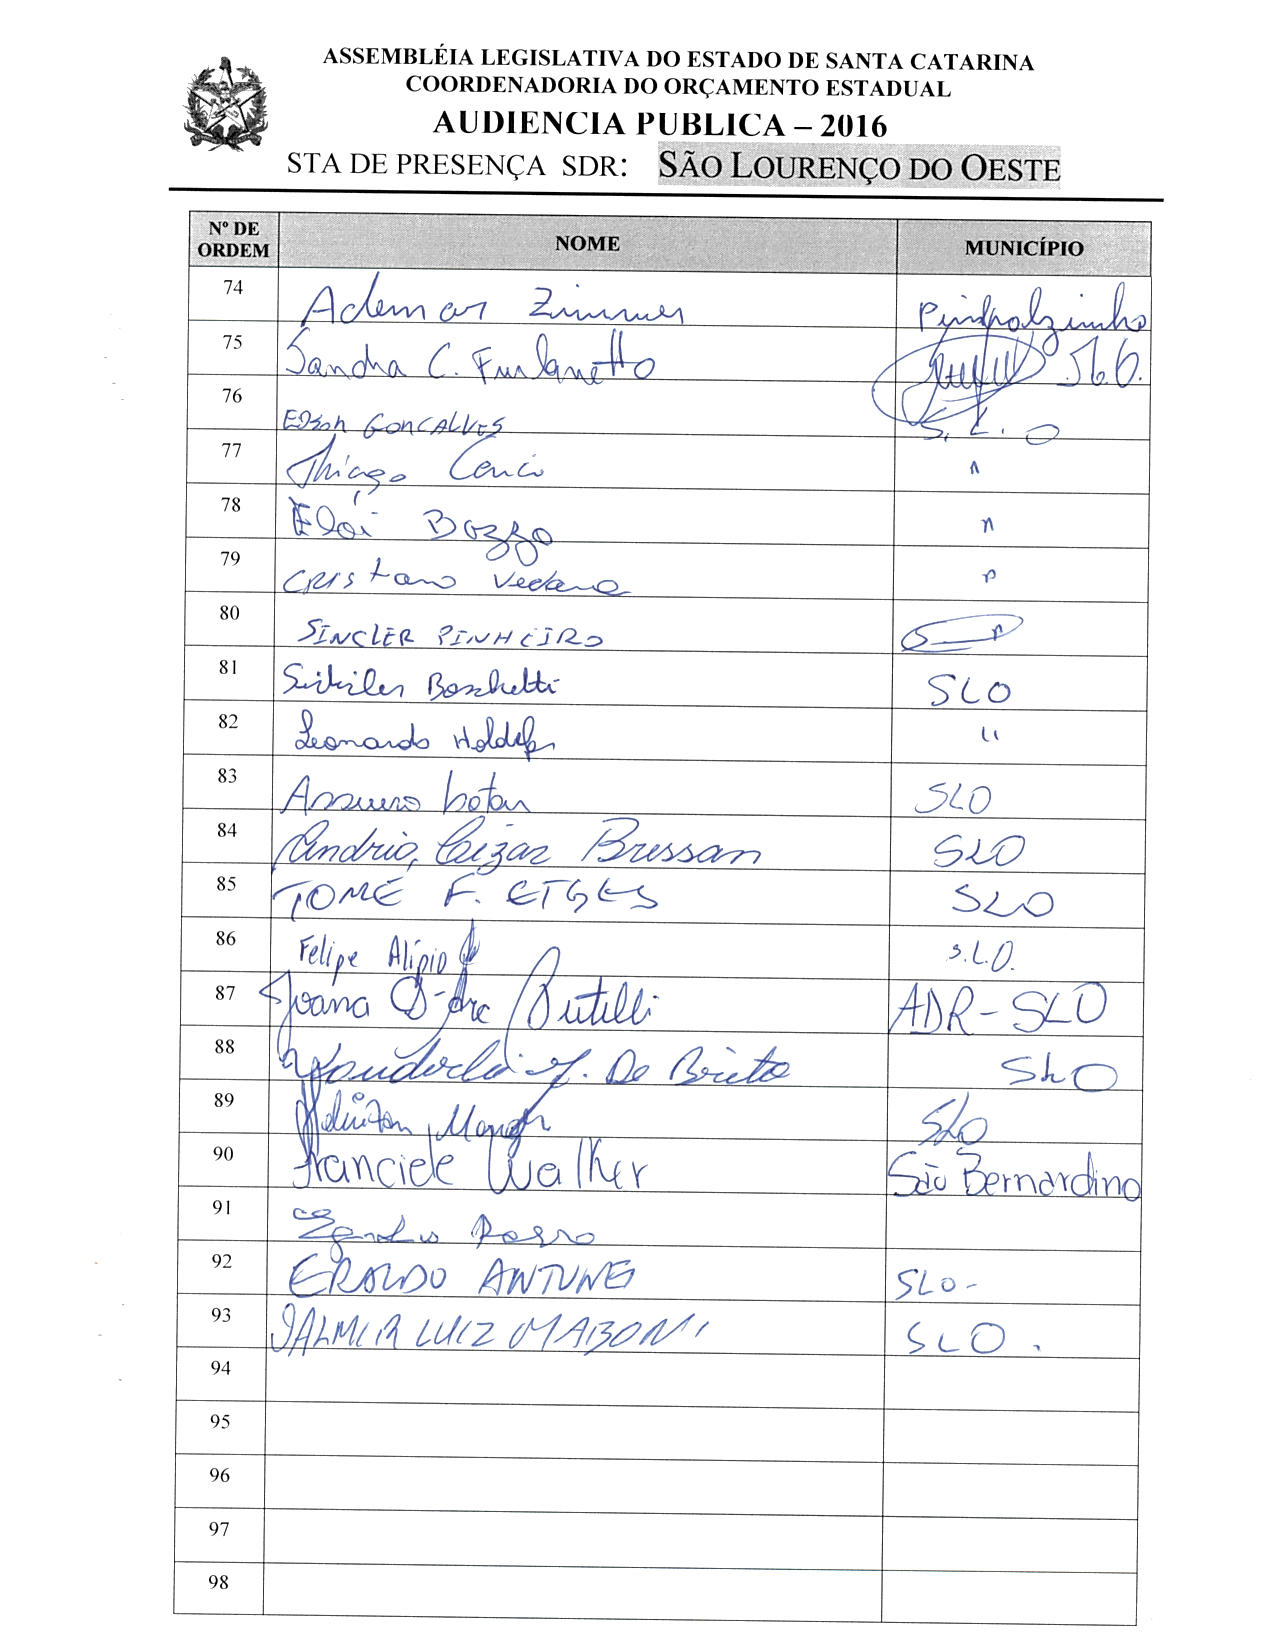 ASSEMBLÉIA LEGISLATIVA DO ESTADO DE SANTA CATARINA
COORDENADORIA DO ORÇAMENTO ESTADUAL
AUDIENCIA PUBLICA – 2016
STA DE PRESENÇA SDR: SÃO LOURENÇO DO OESTE
Nº DE ORDEM NOME MUNICÍPIO
74 Ademar Zimmer Pinhalzinho
75 Sandra C. Furlanetto
76 Edson GONCALVES S. L. O
77 Thiago "
78 Elói Bozzo "
79 CRIStano Vedana "
80 SINCLER PINHEIRO "
81 Boschetti SLO
82 Leonardo "
83 Assuero SLO
84 Bressan SLO
85 TOMÉ F. ETGES SLO
86 Felipe Alípio S.L.O.
87 Joana ADR - SLO
88 De Brito SLO
89 SLO
90 Franciele Walker São Bernardino
91 Rosso
92 ERALDO ANTUNES SLO-
93 JALMIR LUIZ MABONI SLO.
94
95
96
97
98